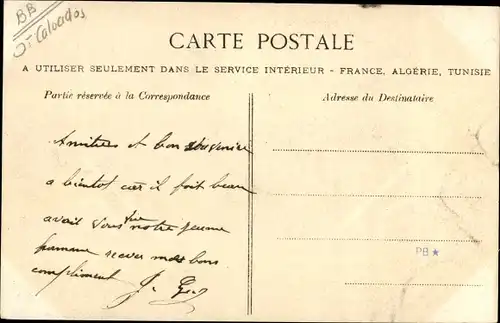 BB
Calvados
CARTE POSTALE
A UTILISER SEULEMENT DANS LE SERVICE INTÉRIEUR - FRANCE, ALGÉRIE, TUNISIE
Partie réservée à la Correspondance
Adresse du Destinataire
Amitiers et bon souvenire
a bientot car il fait beau
avait vous vue notre jeune
homme recever mes bons
compliment J.
PB★